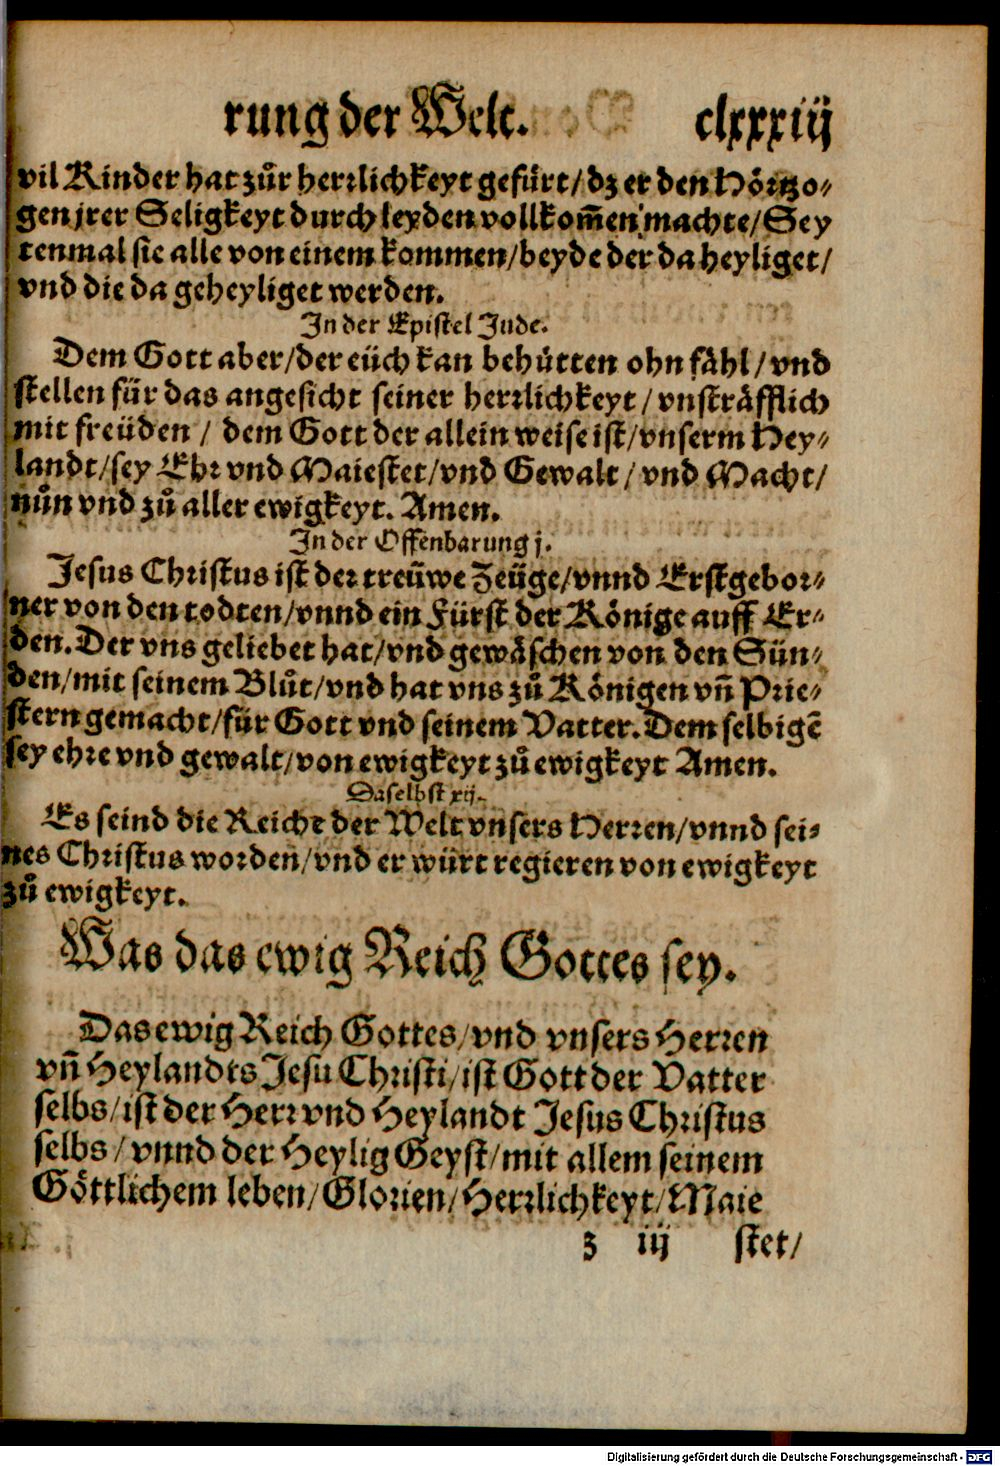 rung der Welt. clxxxiij
vil Kinder hat zůr herrlichkeyt gefürt/ dz er den Hörtzo⸗
gen jrer Seligkeyt durch leyden vollkom̃en machte/ Sey
tenmal sie alle von einem kommen/ beyde der da heyliget/
vnd die da geheyliget werden.
In der Epistel Jude.
Dem Gott aber/ der eüch kan behütten ohn fähl/ vnd
stellen für das angesicht seiner herrlichkeyt/ vnsträfflich
mit freüden/ dem Gott der allein weise ist/ vnserm Hey⸗
landt/ sey Ehr vnd Maiestet/ vnd Gewalt/ vnd Macht/
nůn vnd zů aller ewigkeyt. Amen.
In der Offenbarung j.
Jesus Christus ist der treüwe Zeüge/ vnnd Erstgebor⸗
ner von den todten/ vnnd ein Fürst der Könige auff Er⸗
den. Der vns geliebet hat/ vnd gewäschen von den Sün⸗
den/ mit seinem Blůt/ vnd hat vns zů Königen vñ Prie⸗
stern gemacht/ für Gott vnd seinem Vatter. Dem selbigẽ
sey ehre vnd gewalt/ von ewigkeyt zů ewigkeyt Amen.
Daselbst xij.
Es seind die Reicht der Welt vnsers Herren/ vnnd sei⸗
nes Christus worden/ vnd er würt regieren von ewigkeyt
zů ewigkeyt.
Was das ewig Reich Gottes sey.
Das ewig Reich Gottes/ vnd vnsers Herren
vñ Heylandts Jesu Christi/ ist Gott der Vatter
selbs/ ist der Herr vnd Heylandt Jesus Christus
selbs/ vnnd der Heylig Geyst/ mit allem seinem
Göttlichem leben/ Glorien/ Herrlichkeyt/ Maie
z iij stet/
Digitalisierung gefördert durch die Deutsche Forschungsgemeinschaft - DFG